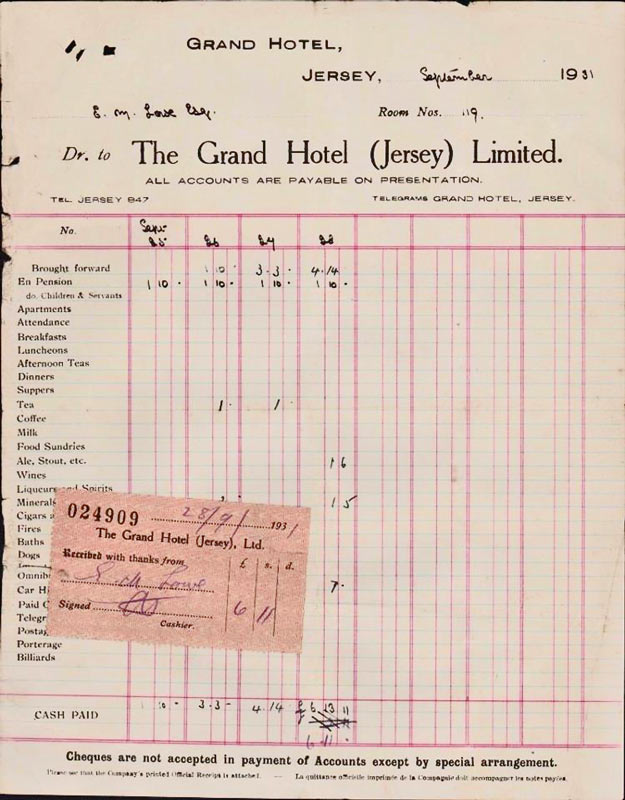 GRAND HOTEL,
JERSEY, September 1931
E. M. Lowe Esq. Room Nos. 119.
Dr. to The Grand Hotel (Jersey) Limited.
ALL ACCOUNTS ARE PAYABLE ON PRESENTATION.
TEL. JERSEY 847 TELEGRAMS GRAND HOTEL, JERSEY.
No. Sept.
25 26 27 28
Brought forward 1 10 - 3. 3 - 4. 14
En Pension 1 10 - 1 10 - 1 10 - 1 10 -
do. Children & Servants
Apartments
Attendance
Breakfasts
Luncheons
Afternoon Teas
Dinners
Suppers
Tea 1 - 1 -
Coffee
Milk
Food Sundries
Ale, Stout, etc. 1 6
Wines
Liqueurs and Spirits
Minerals 1 5
Cigars
Fires
Baths
Dogs
Omnib
Car H 7 -
Paid O
Telegr
Postag
Porterage
Billiards
024909 28/9/ 1931
The Grand Hotel (Jersey), Ltd.
Received with thanks from £ s. d.
E. M. Lowe
Signed 6 11
Cashier.
CASH PAID 1 10 - 3. 3 - 4. 14 £ 6 13 11
6 11 -
Cheques are not accepted in payment of Accounts except by special arrangement.
Please see that the Company's printed Official Receipt is attached. — La quittance officielle imprimée de la Compagnie doit accompagner les notes payées.